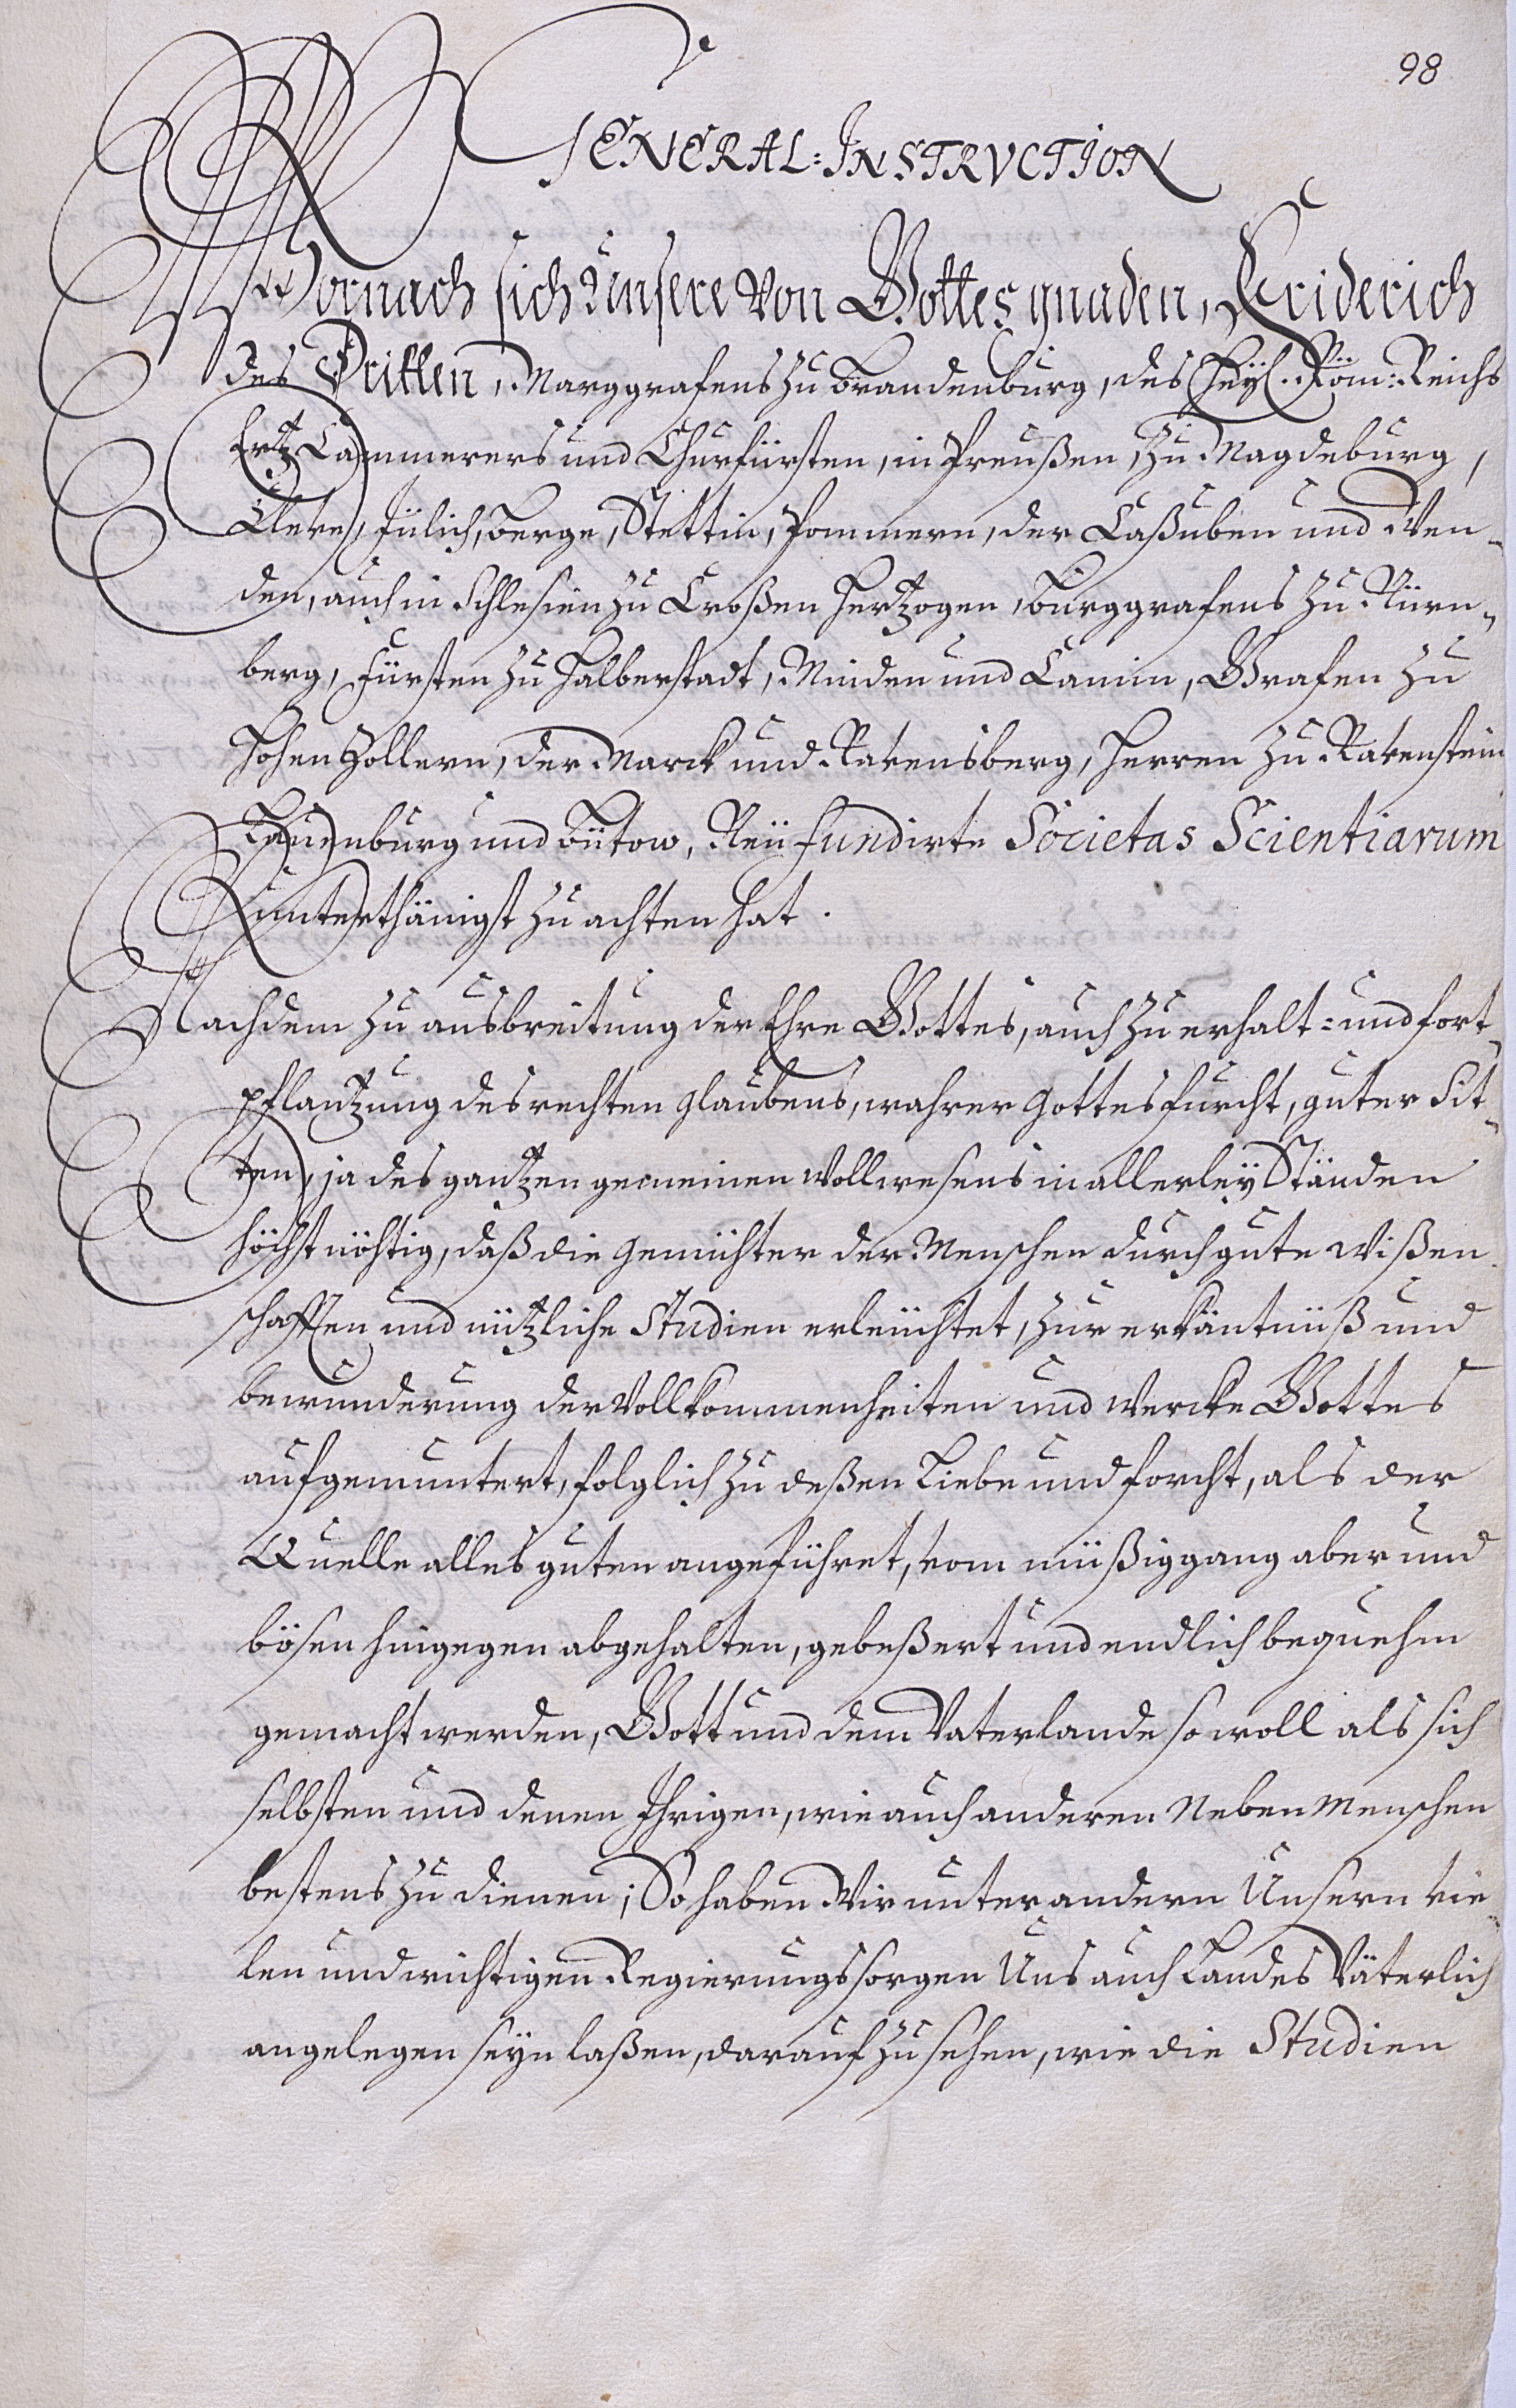 98
GENERAL-INSTRVCTION
Wornach sich Unsere von Gottes gnaden, Friderich
des Dritten, Marggrafens zu Brandenburg, des Heyl. Röm: Reichs
Ertz Cammerers und Churfürsten, in Preußen, zu Magdeburg,
Cleve, Jülich, Berge, Stettin, Pommern, der Caßuben und Wen-
den, auch in Schlesien zu Croßen Hertzogen, Burggrafens zu Nürn-
berg, Fürsten zu Halberstadt, Minden und Camin, Grafen zu
Hohen Zollern, der Marck und Ravensberg, Herren zu Ravenstein
Lauenburg und Bütow, Neü fundirte Societas Scientiarum
unterthänigst zu achten hat.
Nachdem zu ausbreitung der Ehre Gottes, auch zu erhalt= und fort-
pflantzung des rechten glaubens, wahrer Gottesfurcht, guter Sit-
ten, ja des gantzen gemeinen Wollwesens in allerley Ständen
höchst nöhtig, daß die Gemühter der Menschen durch gute Wißen
schafften und nützliche Studien erleüchtet, zur erkäntnüß und
bewunderung der Vollkommenheiten und Wercke Gottes
aufgemuntert, folglich zu deßen Liebe und forcht, als der
Quelle alles guten angeführet, vom müßiggang aber und
bösen hingegen abgehalten, gebeßert und endlich bequehm
gemacht werden, Gott und dem Vaterlande so woll als sich
selbsten und denen Ihrigen, wie auch anderen Neben Menschen
bestens zu dienen; So haben Wir unter andern Unsern vie-
len und wichtigen Regierungssorgen Uns auch Landes Väterlich
angelegen seyn laßen, darauf zu sehen, wie die Studien